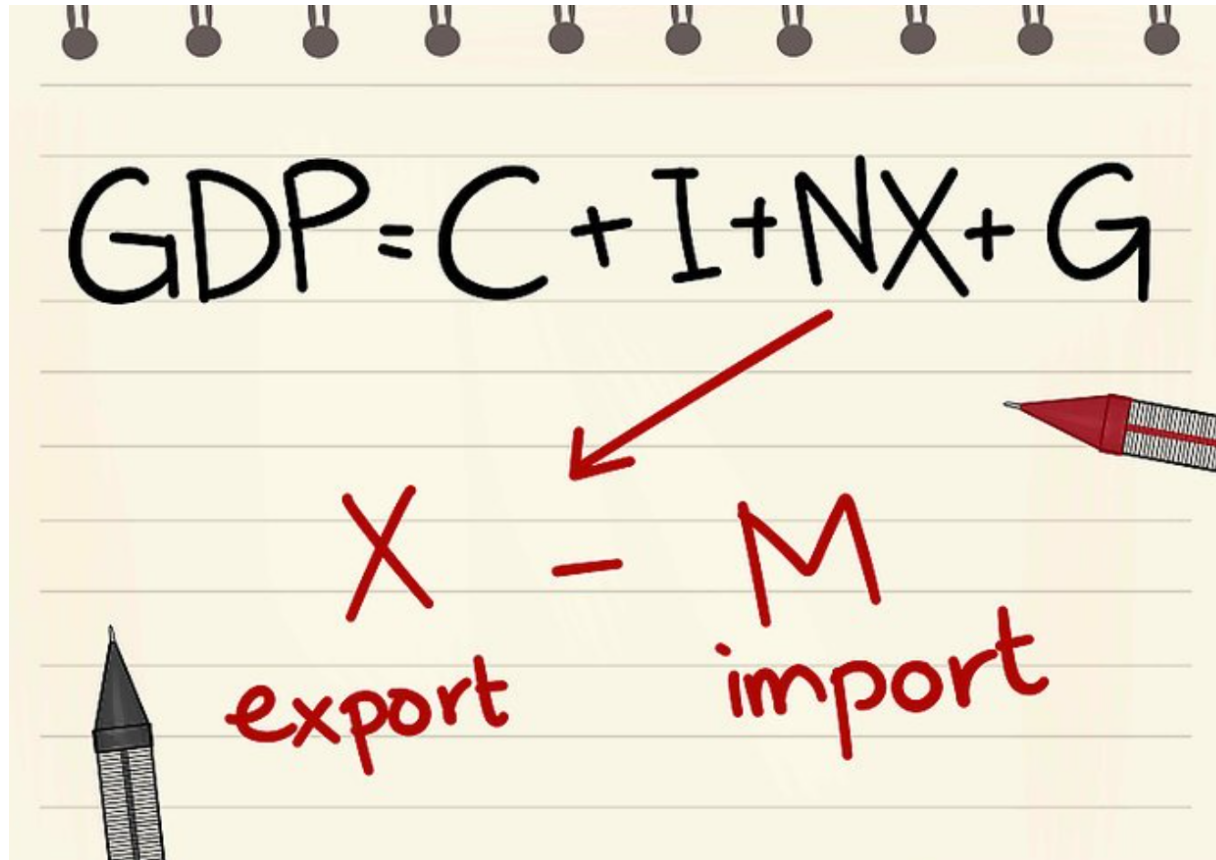 GDP=C+I+NX+G
X - M
export import